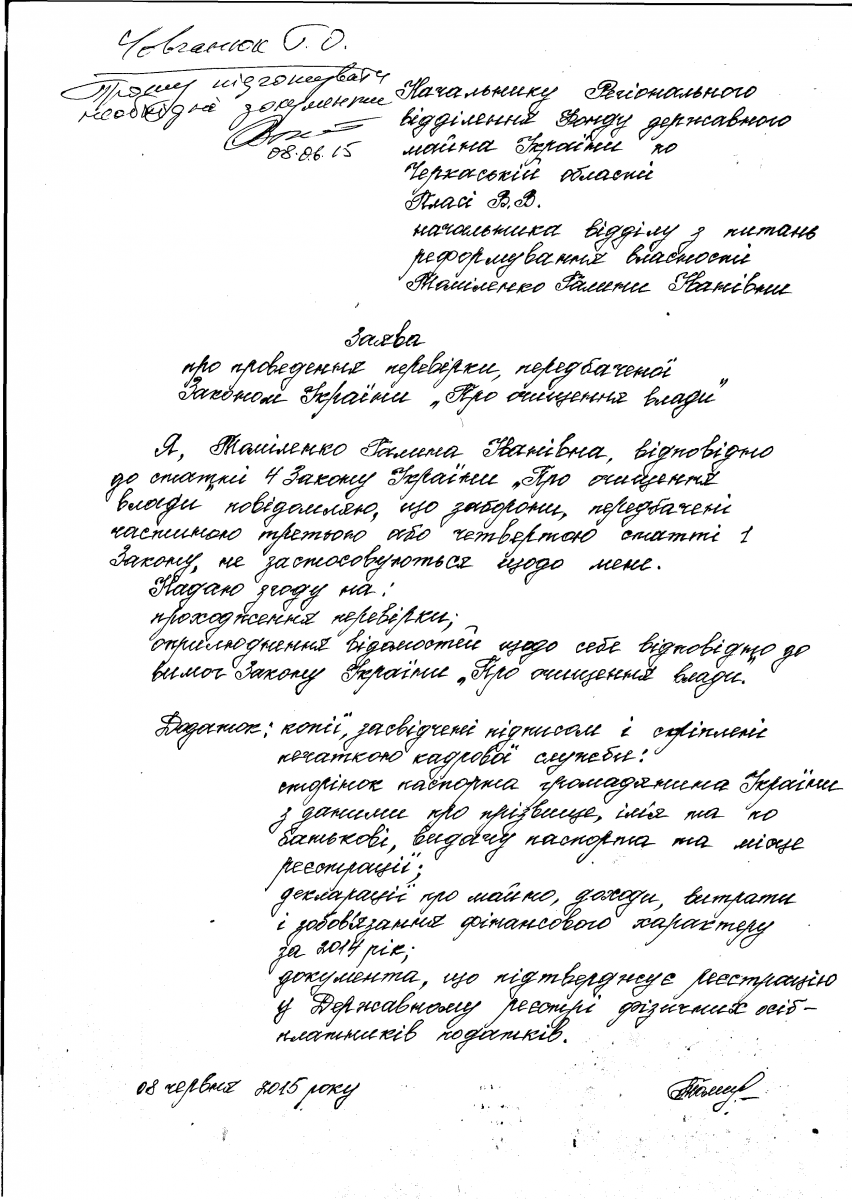 Човганюк Г. О.
Прошу підготувати
необхідні документи
08.06.15
Начальнику Регіонального
відділення Фонду державного
майна України по
Черкаській області
Пласі В.В.
начальника відділу з питань
реформування власності
Томіленко Галини Іванівни
Заява
про проведення перевірки, передбаченої
Законом України „Про очищення влади"
Я, Томіленко Галина Іванівна, відповідно
до статті 4 Закону України „Про очищення
влади" повідомляю, що заборони, передбачені
частиною третьою або четвертою статті 1
Закону, не застосовуються щодо мене.
Надаю згоду на:
проходження перевірки;
оприлюднення відомостей щодо себе відповідно до
вимог Закону України „Про очищення влади."
Додаток: копії, засвідчені підписом і скріплені
печаткою кадрової служби:
сторінок паспорта громадянина України
з даними про прізвище, ім'я та по
батькові, видачу паспорта та місце
реєстрації;
декларації про майно, доходи, витрати
і зобов'язання фінансового характеру
за 2014 рік;
документа, що підтверджує реєстрацію
у Державному реєстрі фізичних осіб–
платників податків.
08 червня 2015 року